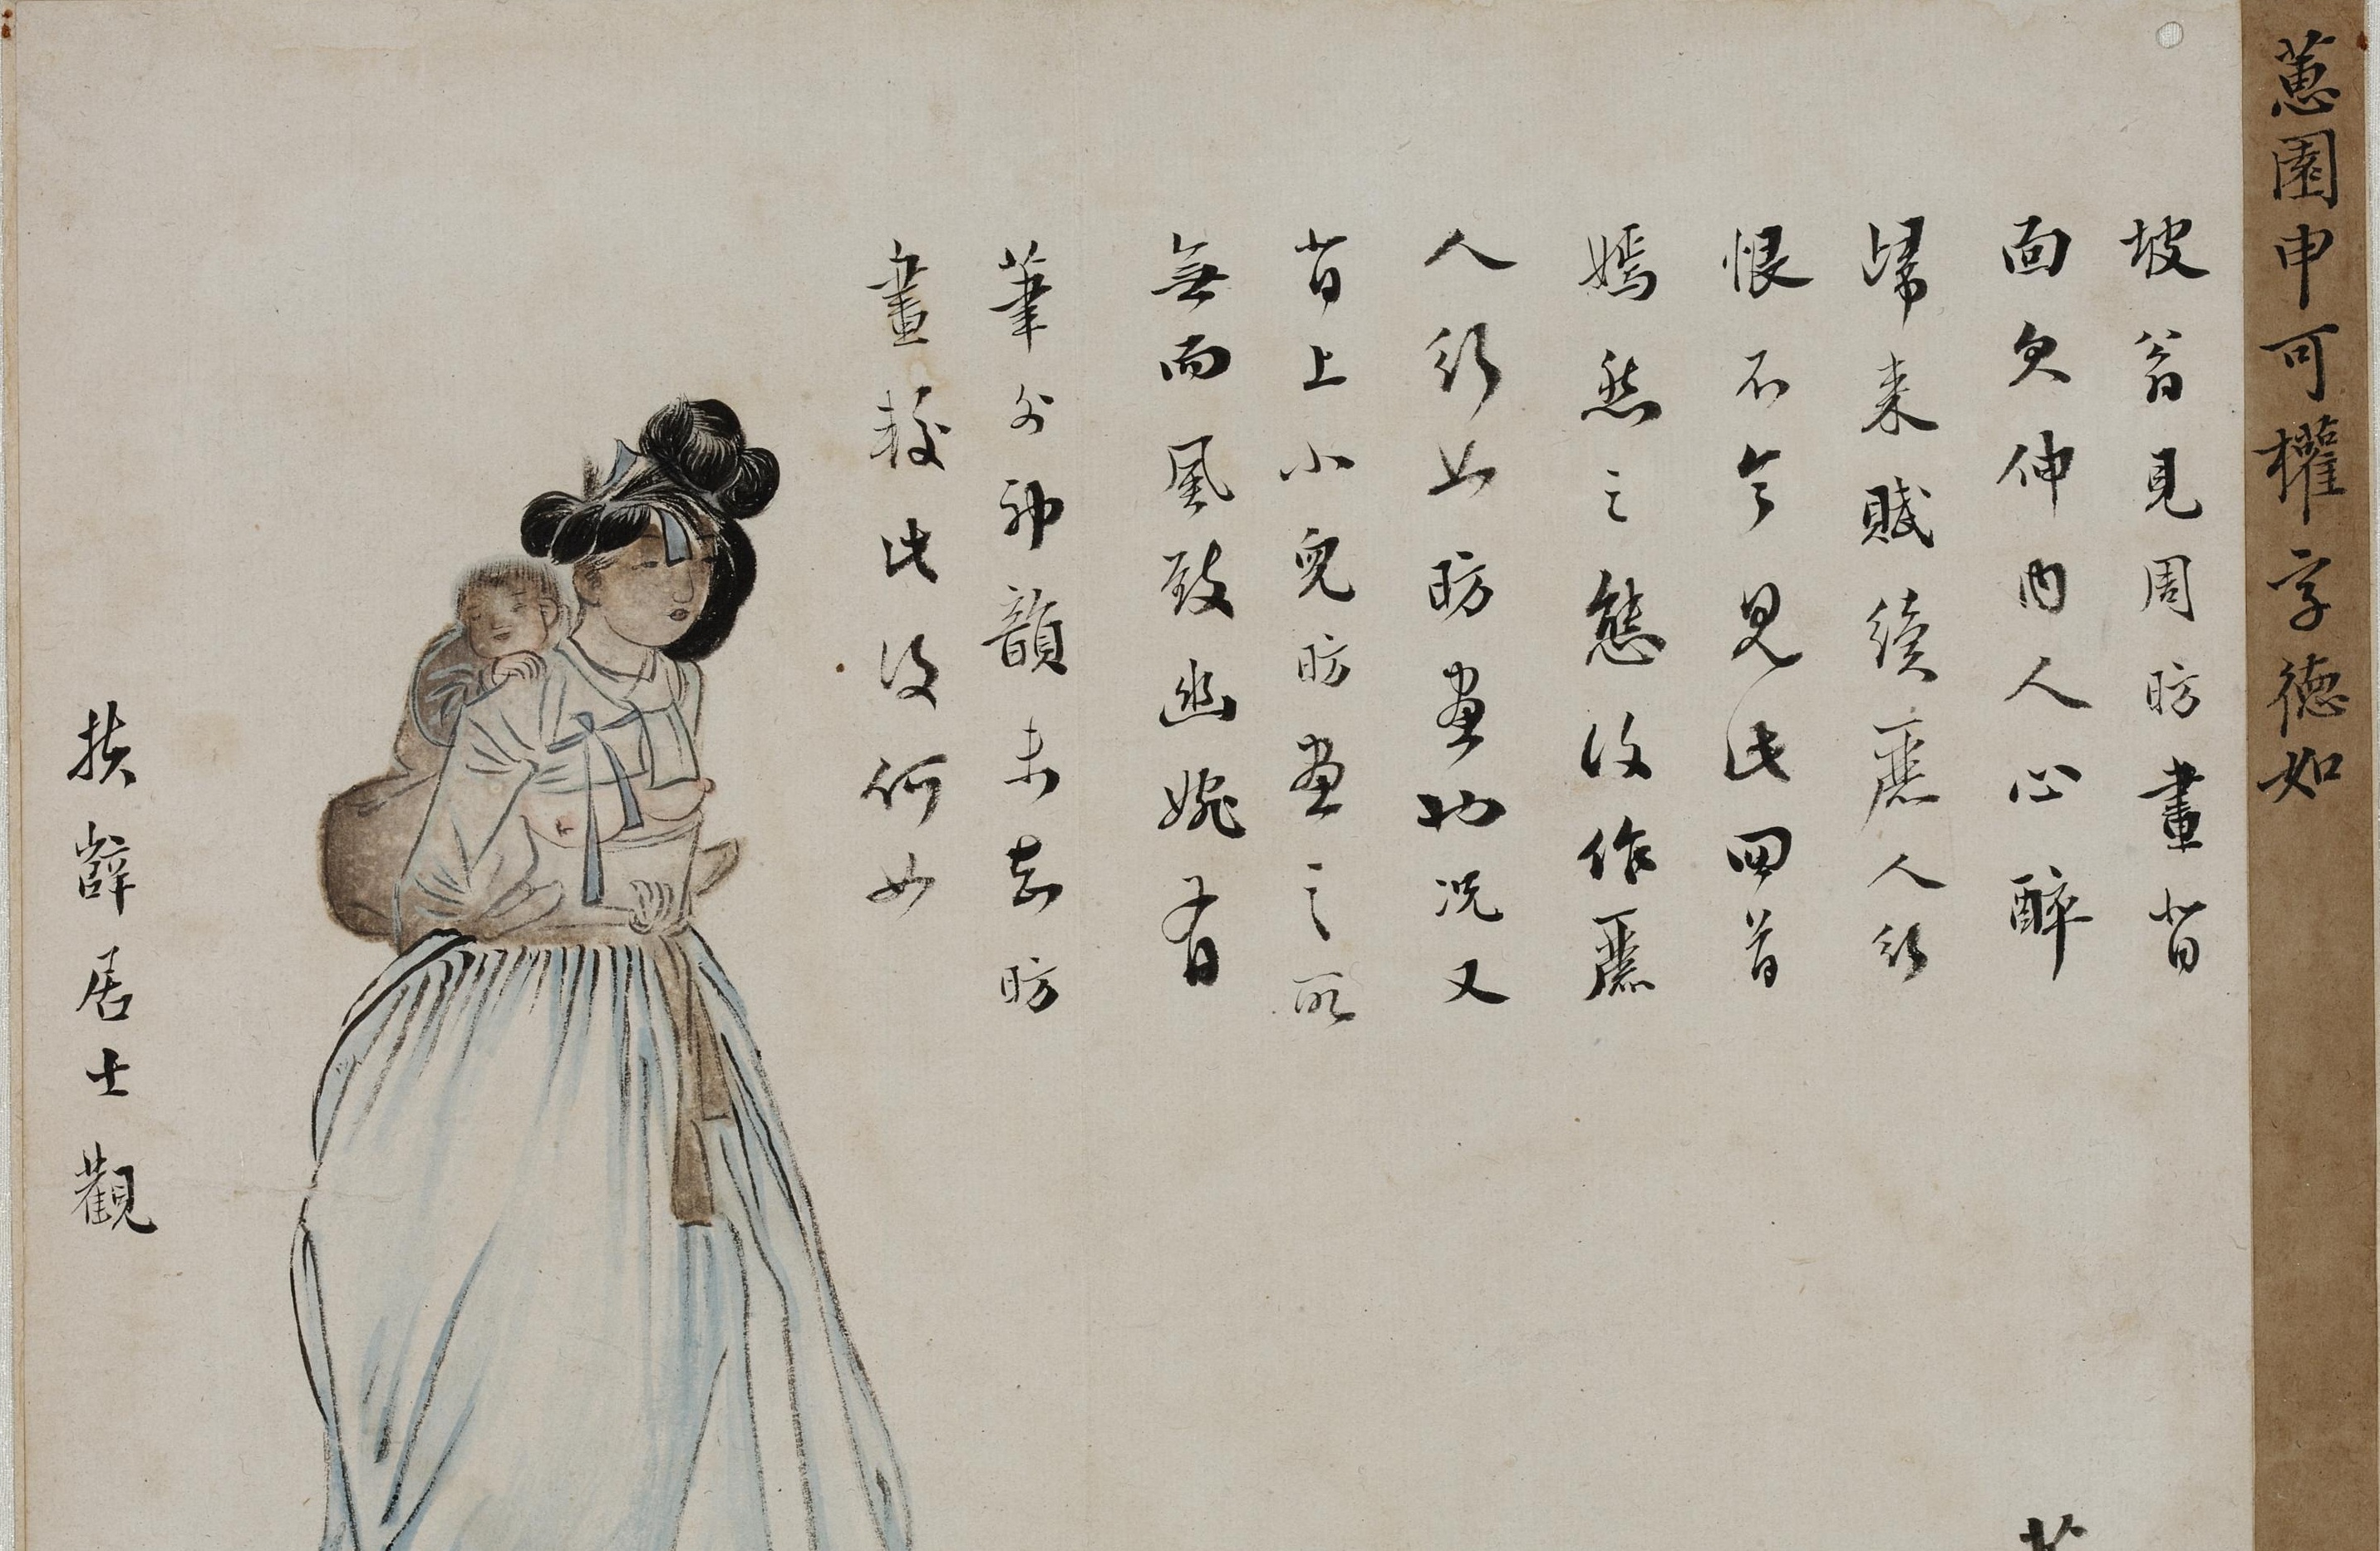 蕙園申可權字德如
坡翁見周昉畫背
面欠伸內人心醉
歸来賦續麗人行
恨不令見此回首
嫣然之態復作麗
人行也昉畫也況又
背上小兒昉畫之所
無而風致幽婉有
筆外神韻未知昉
畫較此復何如
扶薜居士觀